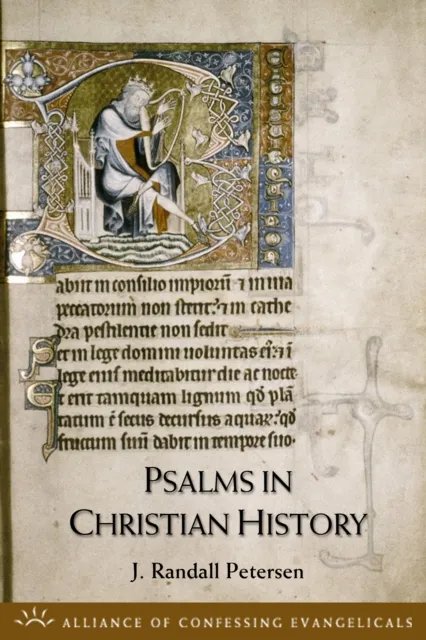 abiit in consilio impiorū ⁊ in uia
peccatorum non stetit: ⁊ in cathe
dra pestilentie non sedit
Set in lege domini uoluntas ei᷒: ⁊ ī
lege eius meditabitur die ac nocte
Et erit tamquam lignum qđ plā
tatum ē secus decursus aquaꝝ: qđ
fructum suū dabit in tempore suo.
PSALMS IN
CHRISTIAN HISTORY
J. Randall Petersen
ALLIANCE OF CONFESSING EVANGELICALS